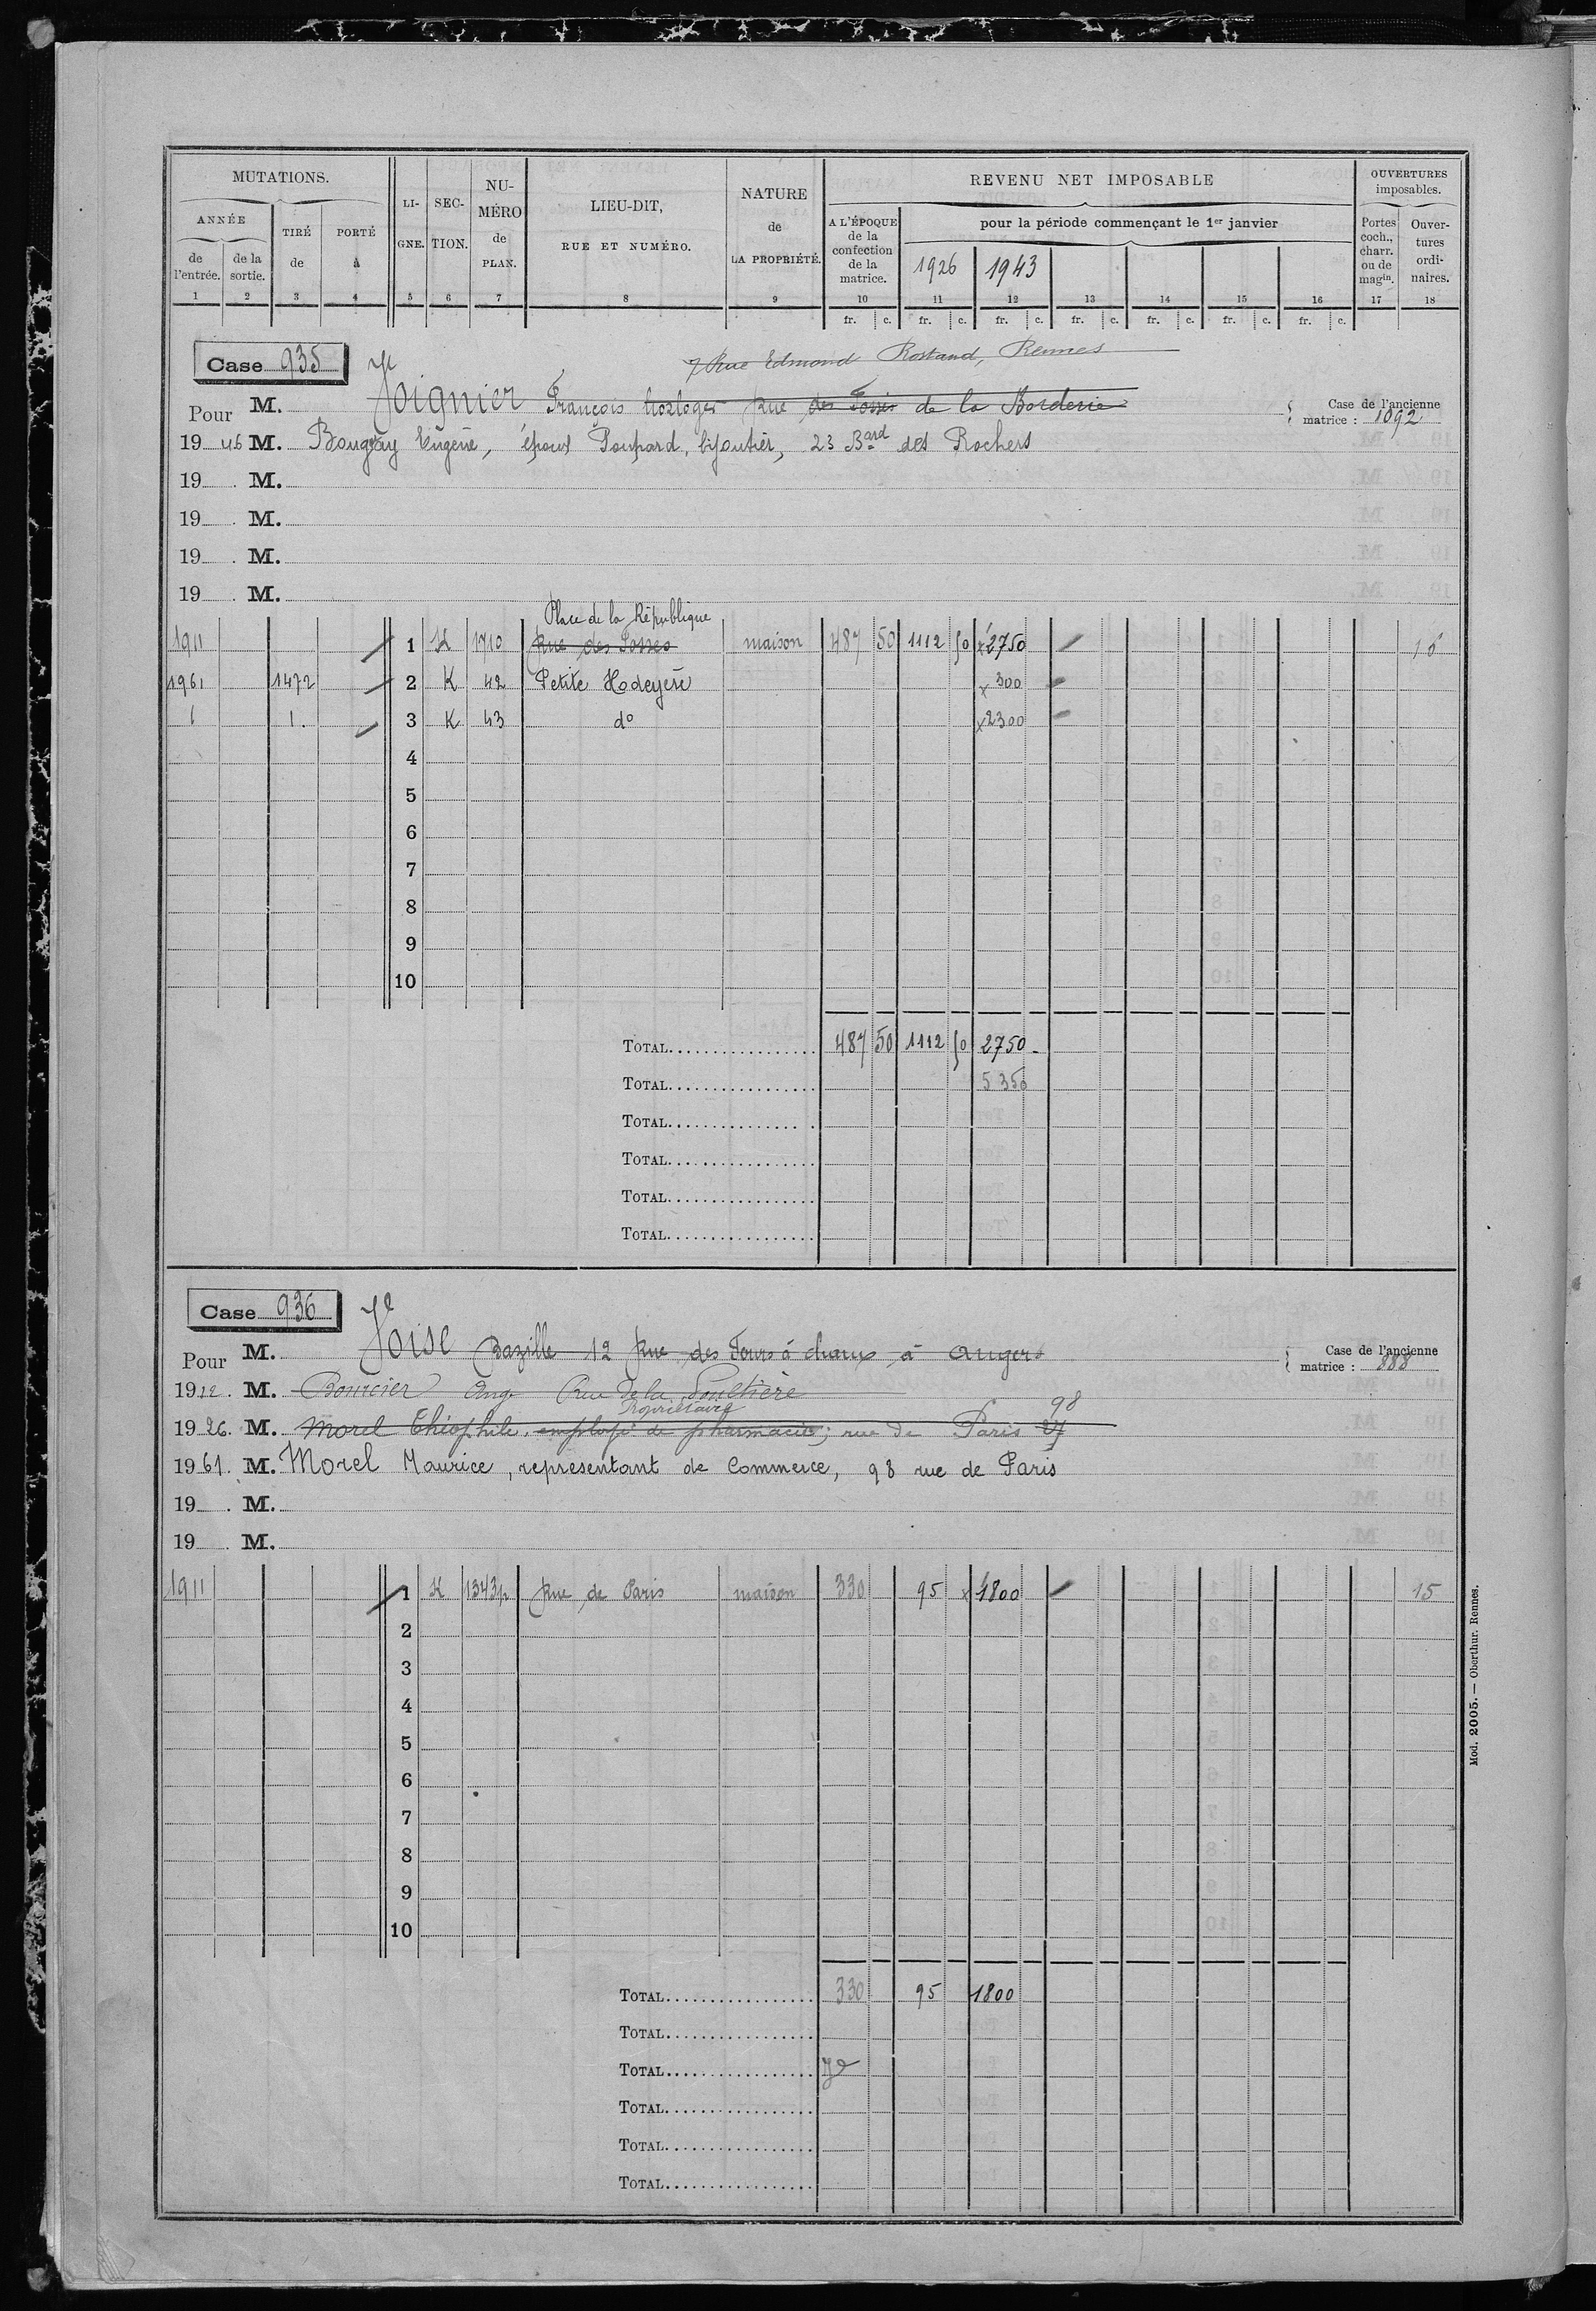 MUTATIONS.
ANNÉE
de l'entrée.
de la sortie.
TIRÉ de
PORTÉ à
LI-GNE.
SEC-TION.
NU-MÉRO de PLAN.
LIEU-DIT, RUE ET NUMÉRO.
NATURE de LA PROPRIÉTÉ.
REVENU NET IMPOSABLE
A L'ÉPOQUE de la confection de la matrice.
pour la période commençant le 1er janvier
1926 1943
OUVERTURES imposables.
Portes coch., charr. ou de magin.
Ouver-tures ordi-naires.
1 2 3 4 5 6 7 8 9 10 11 12 13 14 15 16 17 18
fr. c. fr. c. fr. c. fr. c. fr. c. fr. c. fr. c.
7 Rue Edmond Rostand, Rennes
Case 935
Pour M. Joignier François horloger Rue des Fossés de la Borderie
Case de l'ancienne matrice : 1092
1946 M. Bougeay Eugène, époux Poupard, bijoutier, 23 Bard des Rochers
19 . M.
19 . M.
19 . M.
19 . M.
Place de la République
1911 1 K 1710 Rue des Fossés maison 487 50 1112 50 x2750 16
1961 1472 2 K 42 Petite Hodeyère x300
3 K 43 do x2300
4
5
6
7
8
9
10
TOTAL 487 50 1112 50 2750
TOTAL 5350
TOTAL
TOTAL
TOTAL
TOTAL
Case 936
Pour M. Joise Bazille 12 Rue des Fours à chaux à Angers
Case de l'ancienne matrice : 888
1912. M. Bourcier Ange Rue de la Poultière
Propriétaire 98
1926. M. Morel Théophile, employé de pharmacie; rue de Paris 27
1961. M. Morel Maurice, représentant de Commerce, 98 rue de Paris
19 . M.
19 . M.
1911 1 K 1343p Rue de Paris maison 330 95 x1800 15
2
3
4
5
6
7
8
9
10
TOTAL 330 95 1800
TOTAL
TOTAL
TOTAL
TOTAL
TOTAL
Mod. 2005. — Oberthur. Rennes.